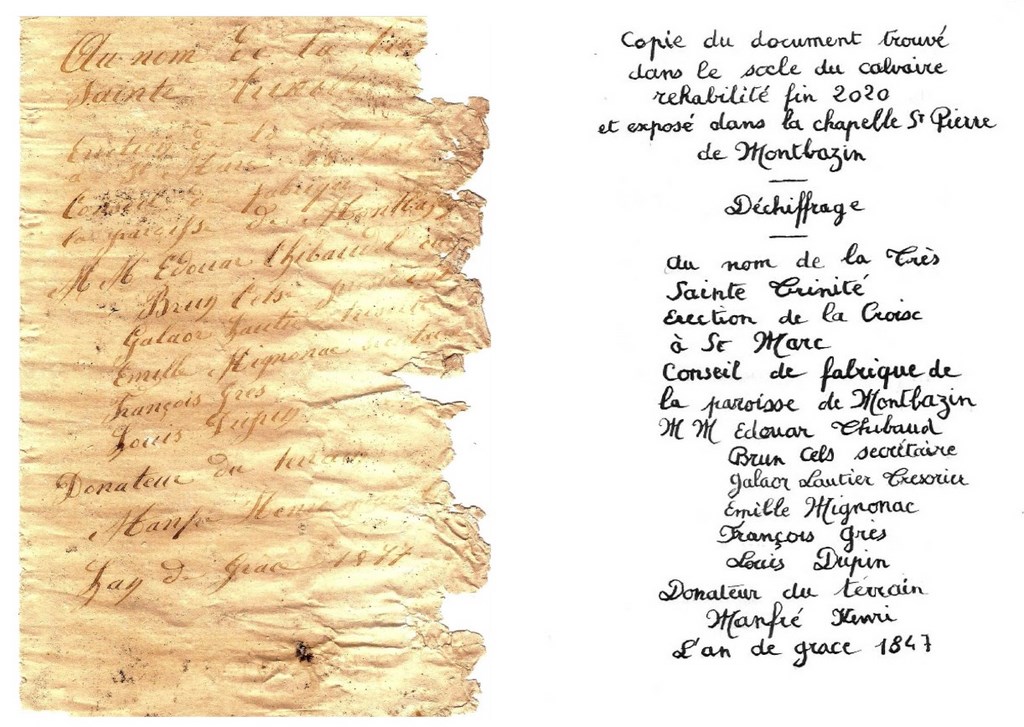 Au nom De la
Sainte
Erection
a St Marc
Conseil de fabrique
la paroisse de Montbaz
M M Edouar thibaud
Brun Cels
Galaor Lautie
Emille Mignonac
François Gres
Louis Dupin
Donateur du terrain
Manfre Henri
Lan de Grace 1847
Copie du document trouvé
dans le socle du calvaire
rehabilité fin 2020
et exposé dans la chapelle St Pierre
de Montbazin
Déchiffrage
Au nom de la Très
Sainte Trinité
Erection de la Croisc
à St Marc
Conseil de fabrique de
la paroisse de Montbazin
M M Edouar Thibaud
Brun Cels secrétaire
Galaor Lautier Tresorier
Emille Mignonac
François Grès
Louis Dupin
Donateur du térrain
Manfré Henri
L'an de grace 1847